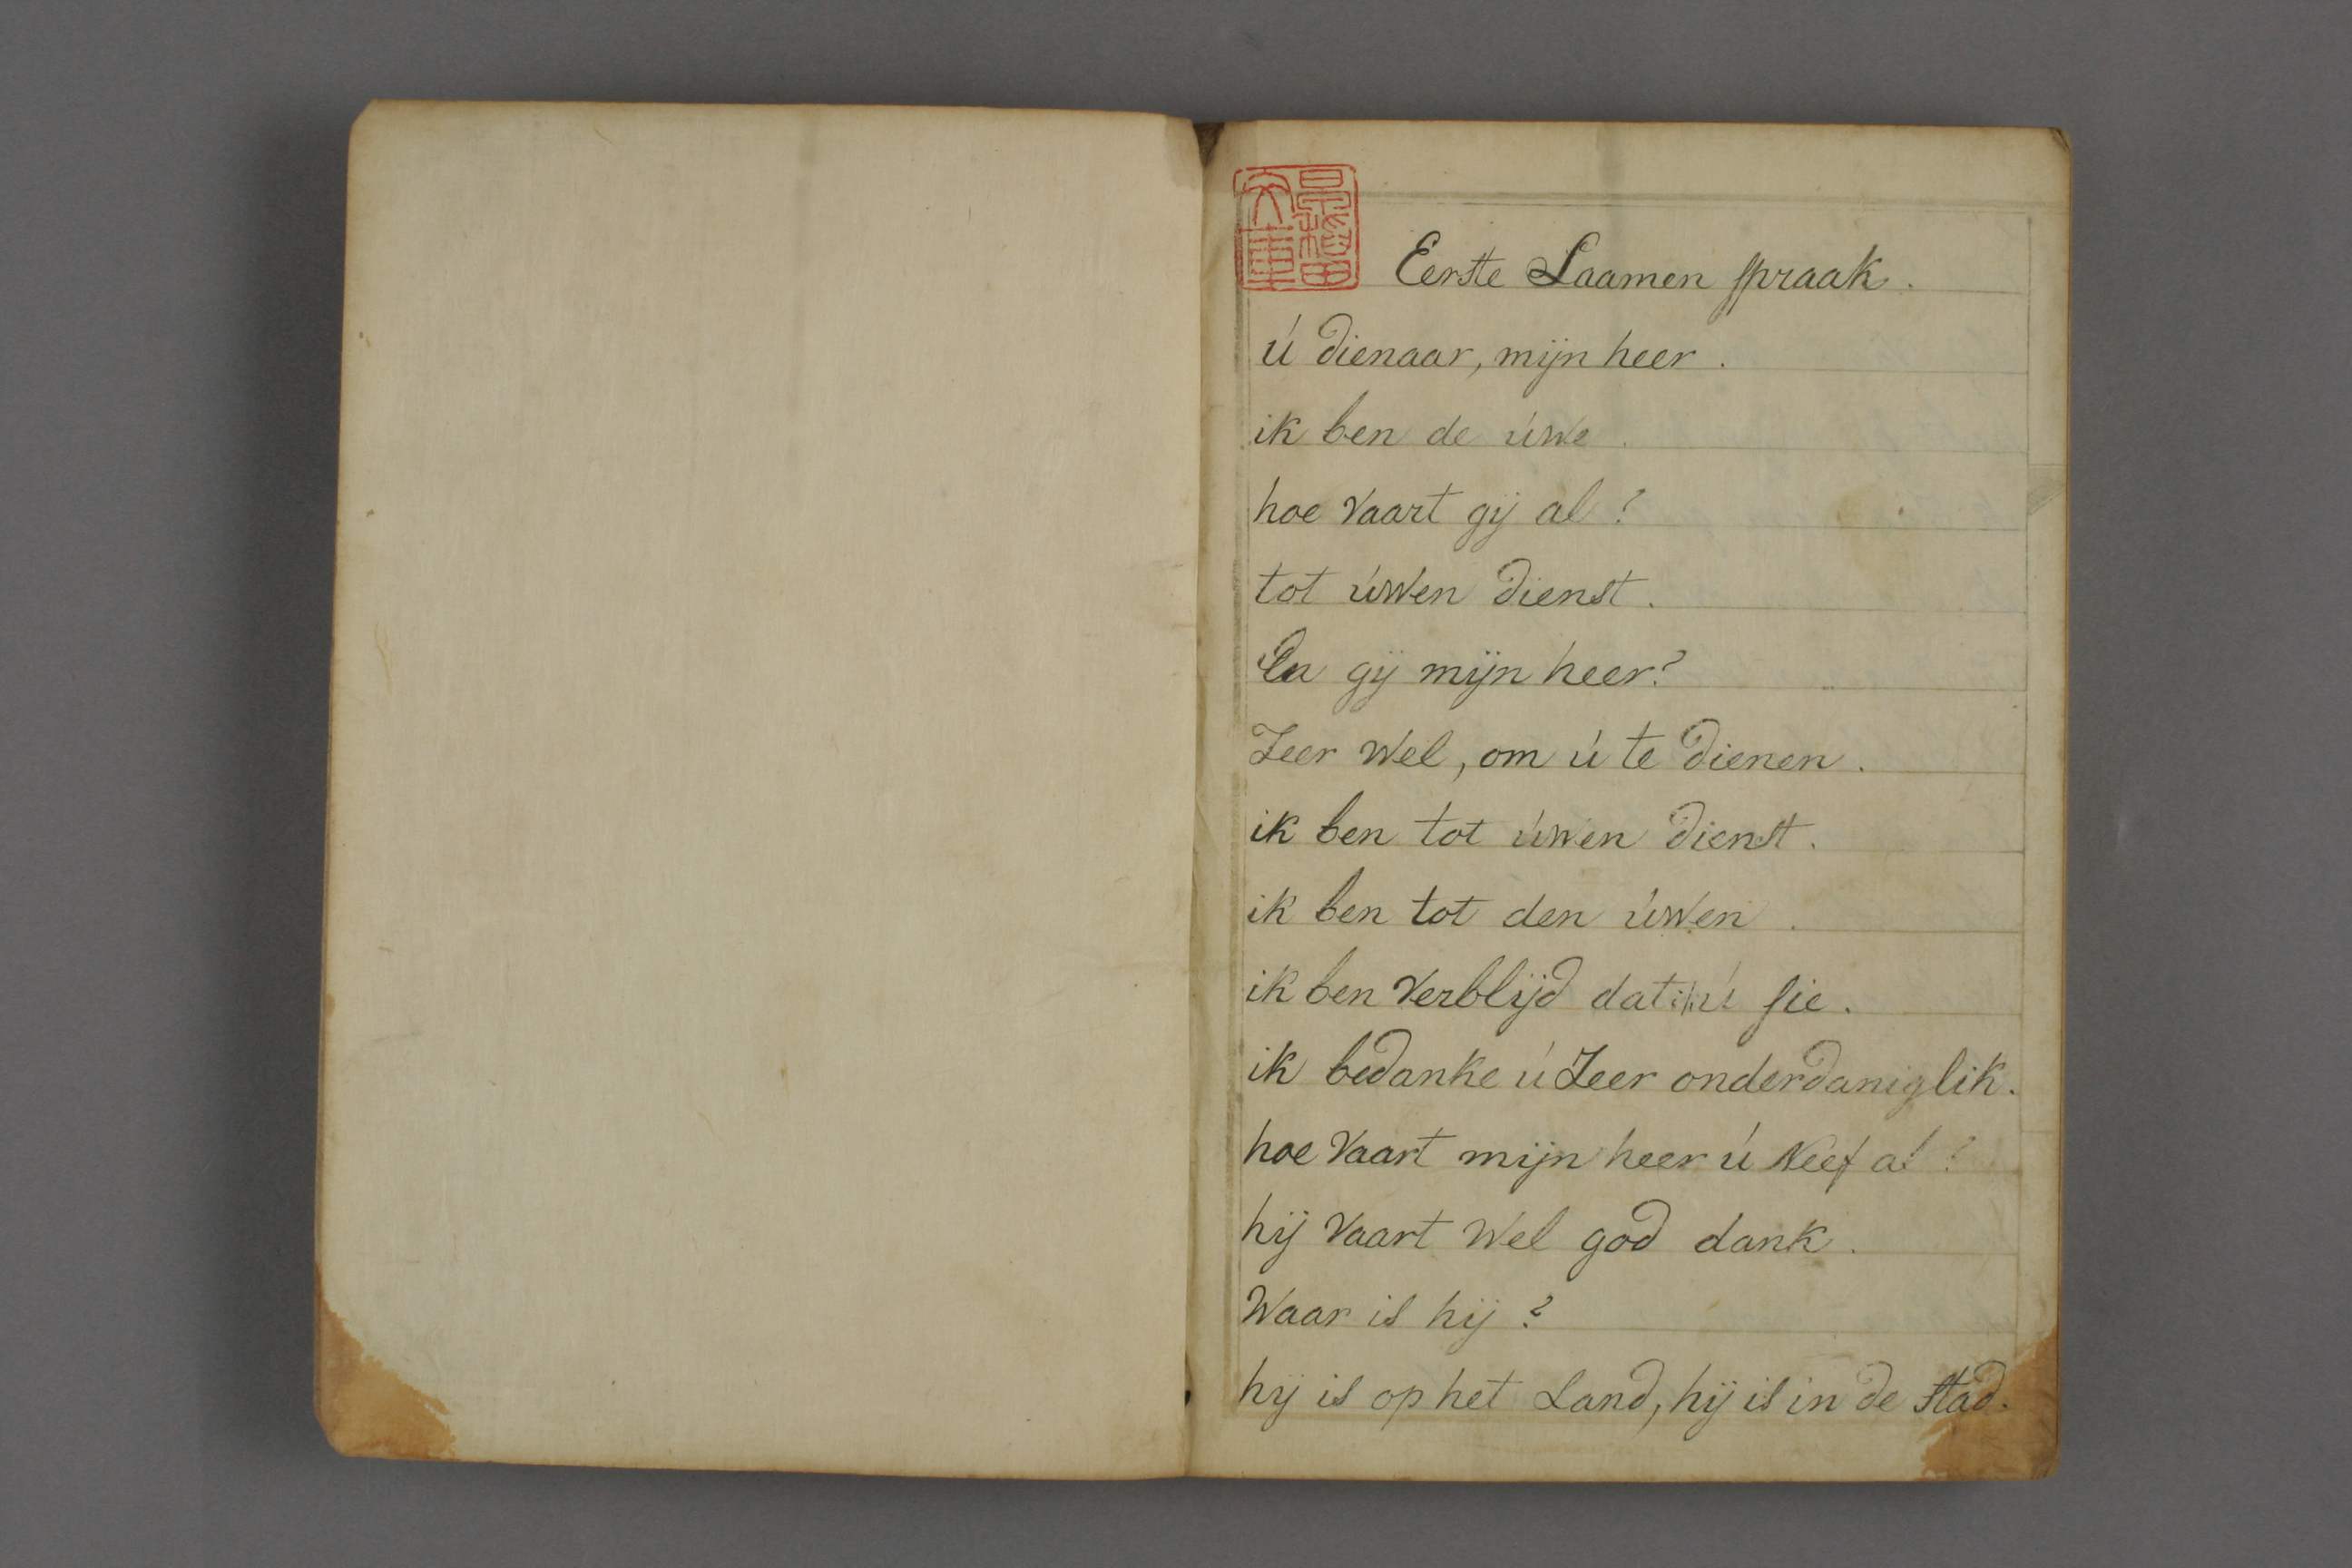 景福
文庫
Eerste Saamen spraak.
ú dienaar, mijn heer.
ik ben de úwe.
hoe Vaart gij al?
tot úwen dienst.
En gij mijn heer?
Zeer wel, om ú te dienen.
ik ben tot úwen dienst.
ik ben tot den úwen.
ik ben Verblijd dat ik ú sie.
ik bedanke ú Zeer onderdaniglik.
hoe Vaart mijn heer ú Neef al?
hij Vaart Wel god dank.
Waar is hij?
hij is op het Land, hij is in de stad.